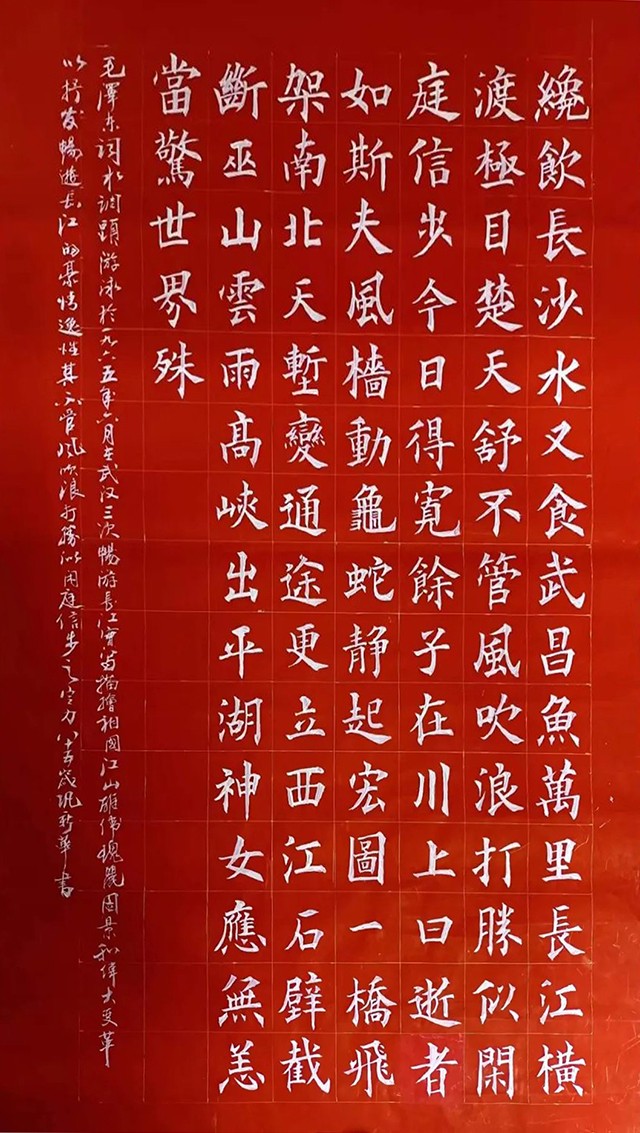 纔飲長沙水又食武昌魚萬里長江橫
渡極目楚天舒不管風吹浪打勝似閑
庭信步今日得寬餘子在川上曰逝者
如斯夫風檣動龜蛇静起宏圖一橋飛
架南北天塹變通途更立西江石壁截
斷巫山雲雨高峽出平湖神女應無恙
當驚世界殊
毛澤东词水调頭游泳於一九六五年六月在武汉三次暢游長江描繪祖國江山雄偉瑰麗图景和偉大变革
以抒发暢遊長江的豪情逸性其不管風吹浪打勝似闲庭信步之定力八十歲巩新華書